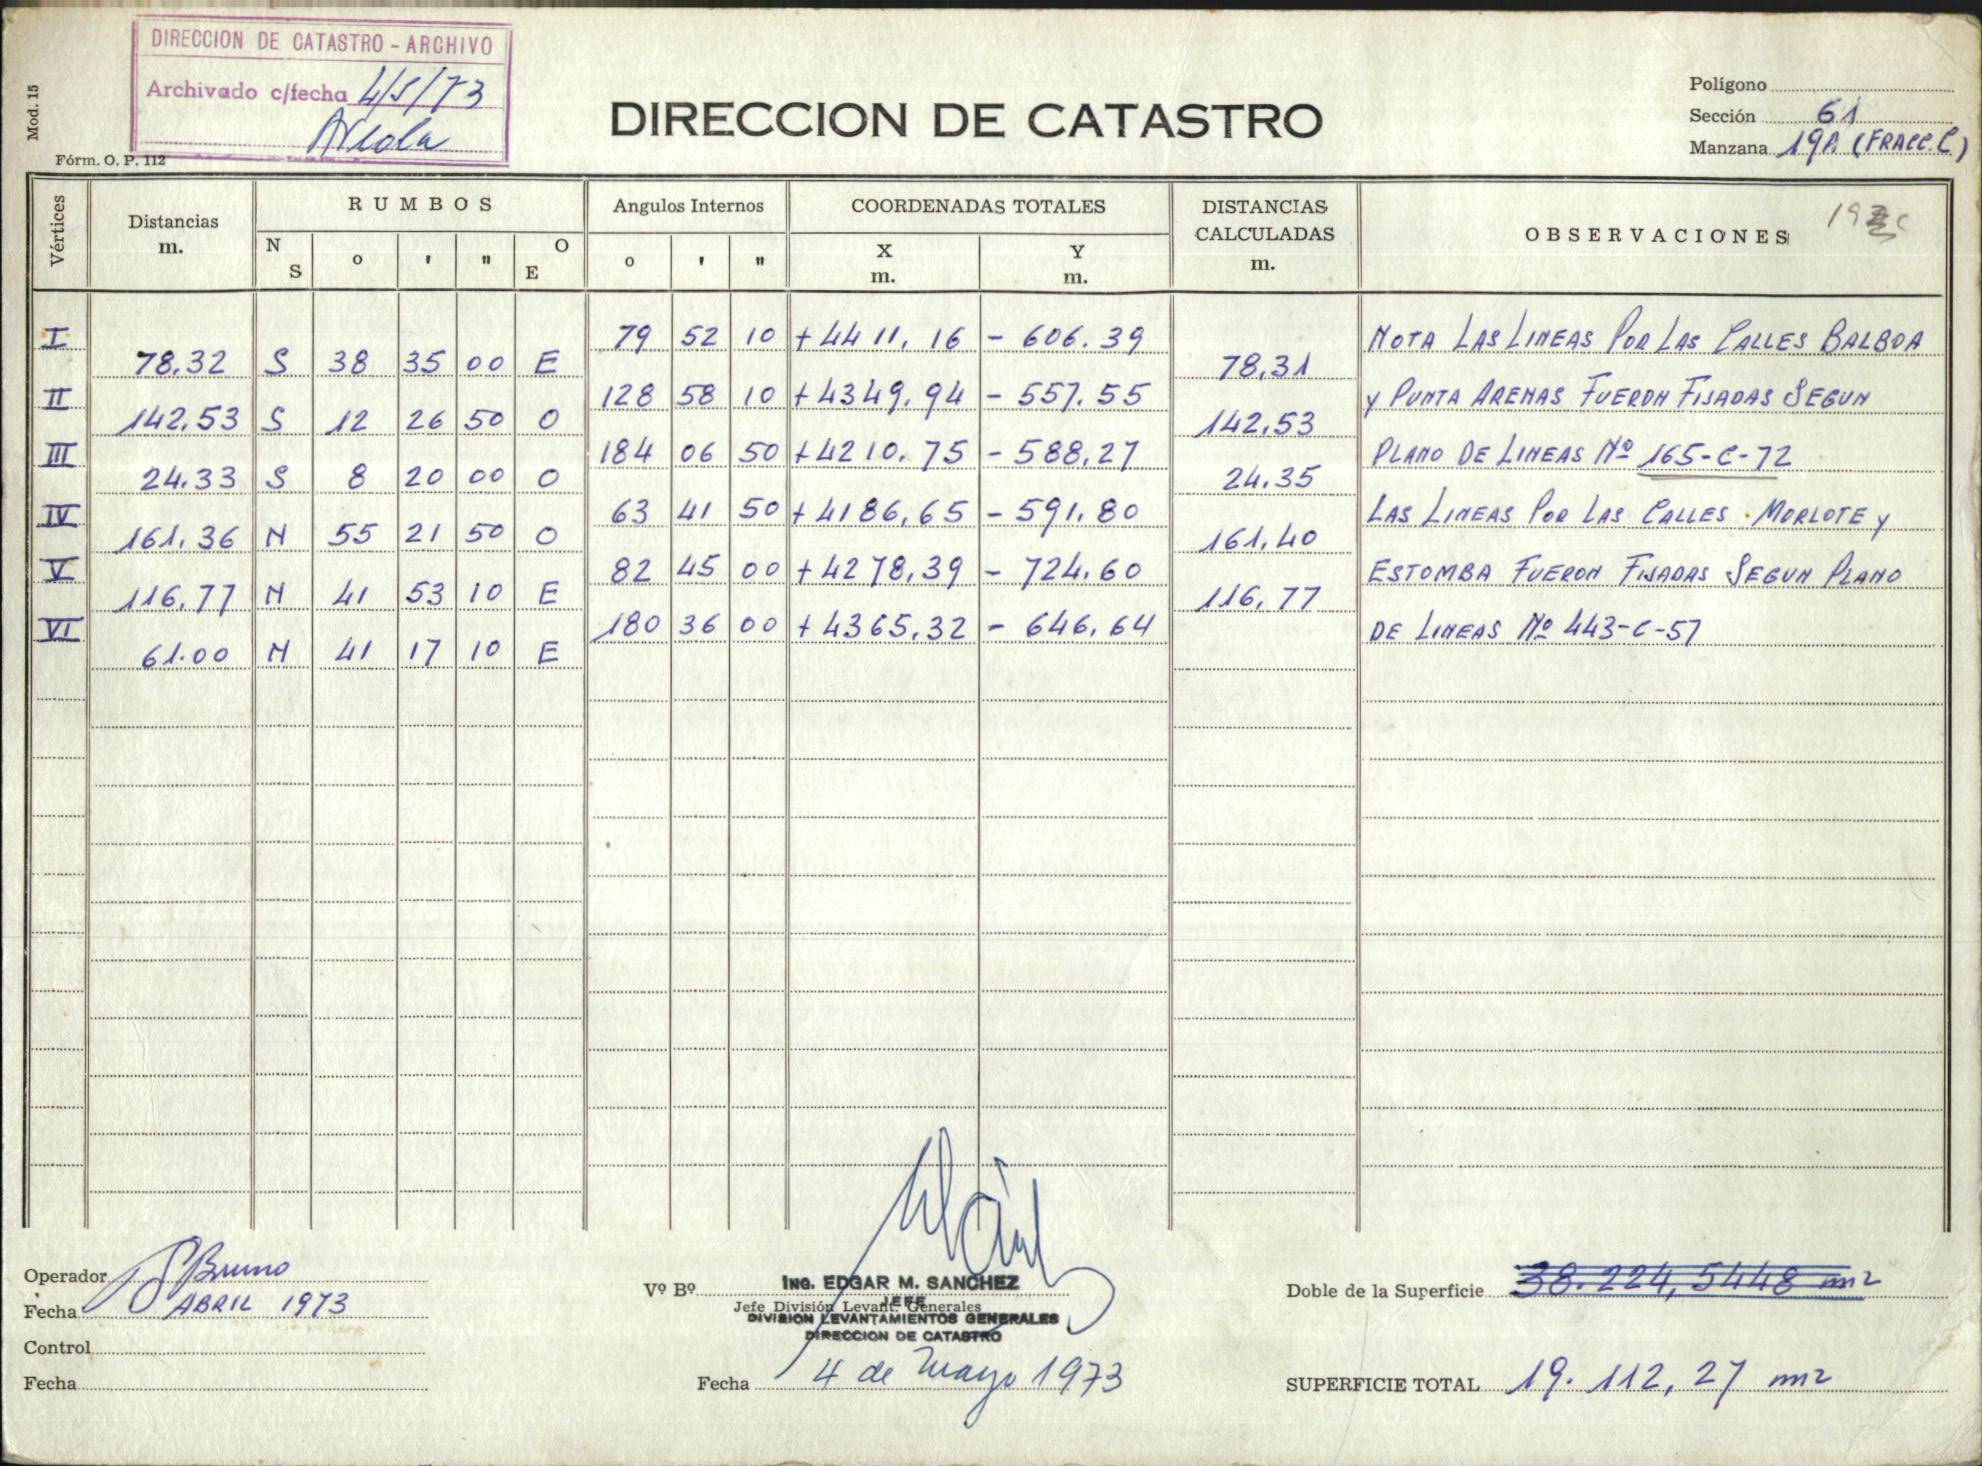 DIRECCION DE CATASTRO - ARCHIVO
Archivado c/fecha 4/5/73
Mod. 15
Fórm. O. P. 112
DIRECCION DE CATASTRO
Polígono
Sección 61
Manzana 19A (FRACC. C)
Vértices
Distancias
m.
RUMBOS
N S
o ' "
O E
Angulos Internos
o ' "
COORDENADAS TOTALES
X
m.
Y
m.
DISTANCIAS
CALCULADAS
m.
OBSERVACIONES
I 79 52 10 +4411,16 - 606.39
78,32 S 38 35 00 E 78,31
II 128 58 10 +4349,94 - 557.55
142,53 S 12 26 50 O 142,53
III 184 06 50 +4210,75 - 588,27
24.33 S 8 20 00 O 24.35
IV 63 41 50 +4186,65 - 591,80
161,36 N 55 21 50 O 161,40
V 82 45 00 +4278,39 - 724.60
116,77 N 41 53 10 E 116,77
VI 180 36 00 +4365,32 - 646,64
61.00 N 41 17 10 E
NOTA LAS LINEAS POR LAS CALLES BALBOA
Y PUNTA ARENAS FUERON FIJADAS SEGUN
PLANO DE LINEAS Nº 165-C-72
LAS LINEAS POR LAS CALLES MORLOTE Y
ESTOMBA FUERON FIJADAS SEGUN PLANO
DE LINEAS Nº 443-C-57
Operador Bruno
Fecha ABRIL 1973
Control
Fecha
Vº Bº
Ing. EDGAR M. SANCHEZ
JEFE
Jefe División Levant. Generales
DIVISION LEVANTAMIENTOS GENERALES
DIRECCION DE CATASTRO
Fecha 4 de Mayo 1973
Doble de la Superficie 38.224,5448 m2
SUPERFICIE TOTAL 19.112,27 m2